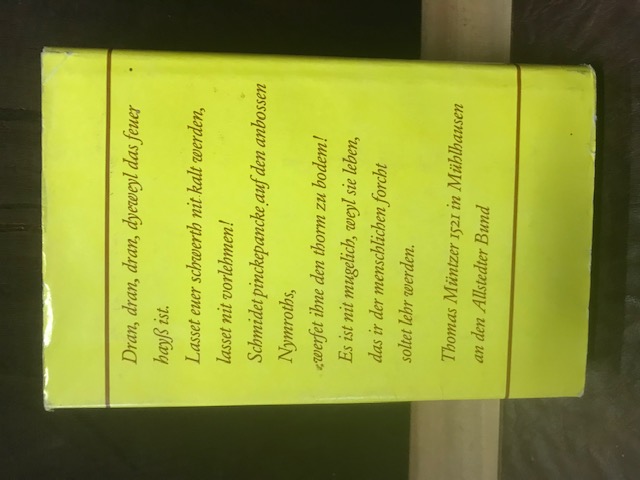 Dran, dran, dran, dyeweyl das feuer
hayß ist.
Lasset euer schwerth nit kalt werden,
lasset nit vorlehmen!
Schmidet pinckepancke auf den anbossen
Nymroths,
werfet ihne den thorm zu bodem!
Es ist nit mugelich, weyl sie leben,
das ir der menschlichen forcht
soltet lehr werden.
Thomas Müntzer 1521 in Mühlhausen
an den Allstedter Bund